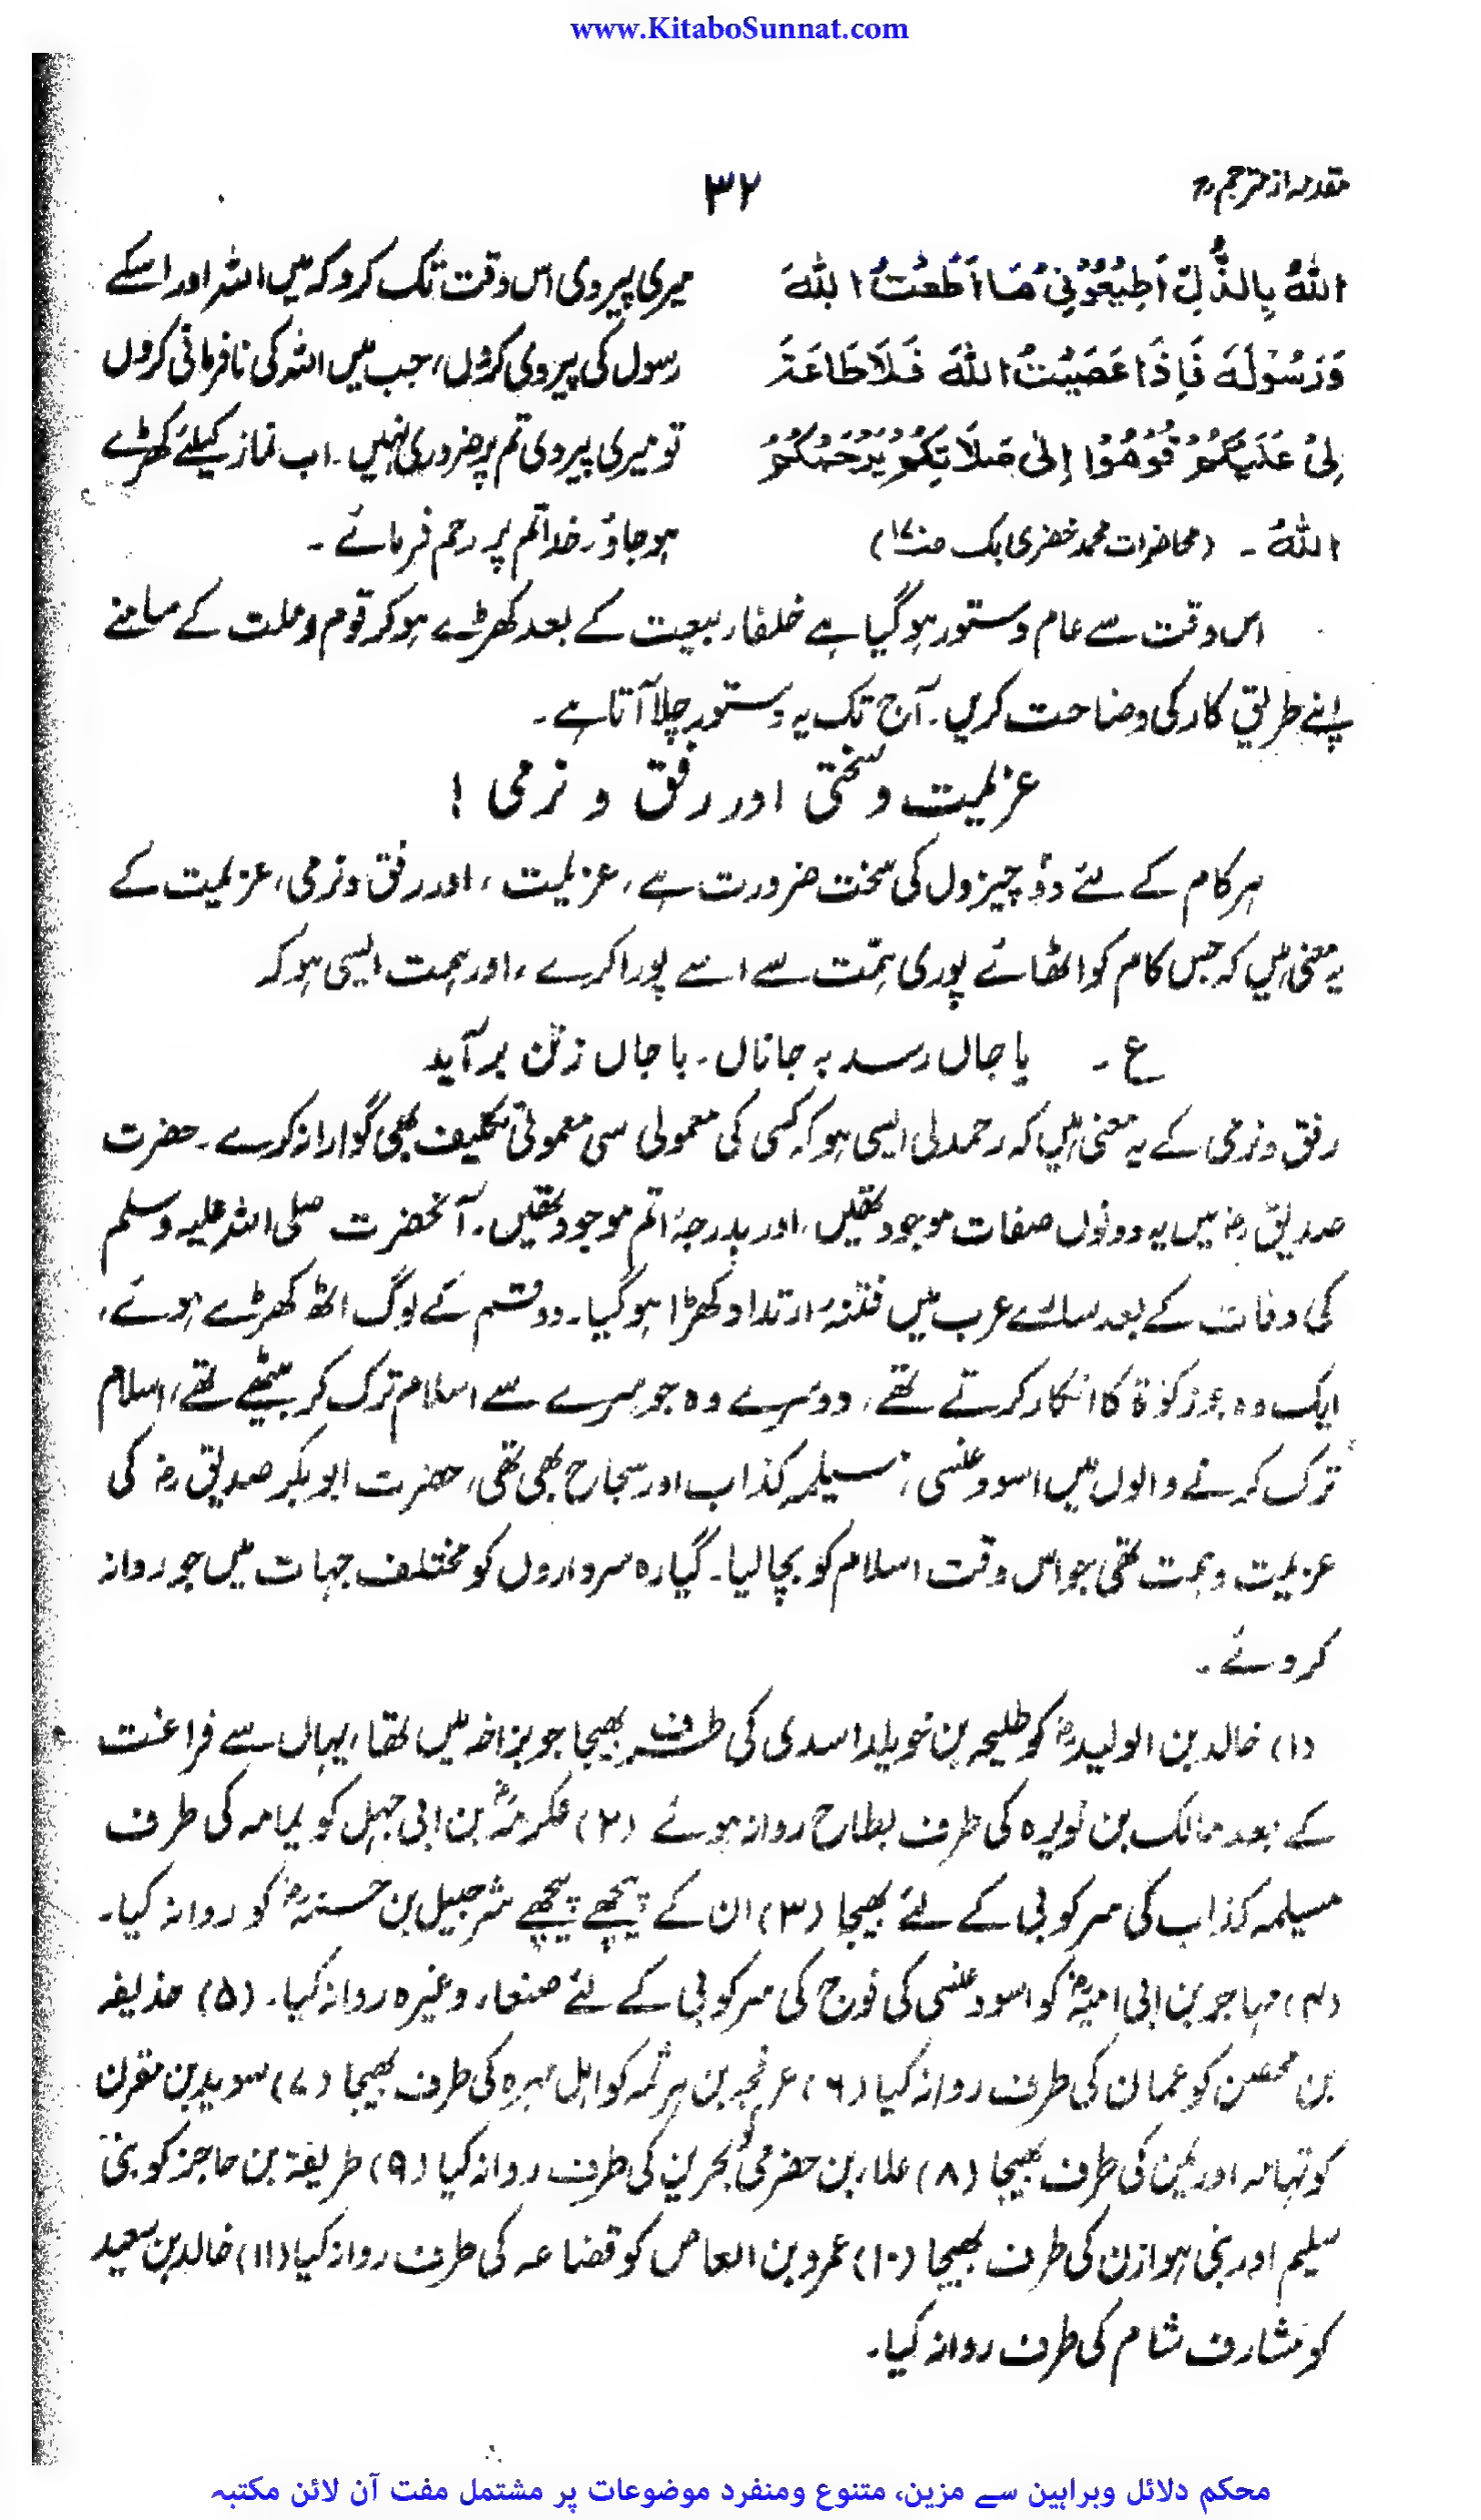 www.KitaboSunnat.com
مقدمہ از مترجم
۳۲
اللهُ بِالذُّلِّ اَطِيْعُوْنِيْ مَا اَطَعْتُ اللهَ
وَرَسُوْلَهٗ فَاِذَا عَصَيْتُ اللهَ فَلَا طَاعَةَ
لِيْ عَلَيْكُمْ قُوْمُوْا اِلىٰ صَلَا تِكُمْ يَرْحَمُكُمُ
اللهُ ۔ (محاضرات محمد خضری بک)
میری پیروی اس وقت تک کرو کہ میں اللہ اور اسکے
رسول کی پیروی کروں، جب میں اللہ کی نافرمانی کروں
تو میری پیروی تم پر ضروری نہیں۔ اب نماز کیلئے کھڑے
ہو جاؤ۔ خدا تم پر رحم فرمائے ۔
اس وقت سے عام دستور ہو گیا ہے خلفاء بیعت کے بعد کھڑے ہو کر قوم و ملت کے سامنے
اپنے طریق کار کی وضاحت کریں۔ آج تک یہ دستور چلا آتا ہے۔
عزیمت و سختی اور رفق و نرمی !
ہر کام کے لئے دو چیزوں کی سخت ضرورت ہے، عزیمت، اور رفق و نرمی، عزیمت کے
یہ معنی ہیں کہ جس کام کو اٹھائے پوری ہمت سے اسے پورا کرے، اور ہمت ایسی ہو کہ
ع ۔ یا جاں رسد بہ جاناں ۔ یا جاں زتن بر آید
رفق و نرمی کے یہ معنی ہیں کہ رحمدلی ایسی ہو کہ کسی کی معمولی سی معمولی تکلیف بھی گوارا نہ کرے۔ حضرت
صدیق رضؓ میں یہ دونوں صفات موجود تھیں، اور بدرجۂ اتم موجود تھیں۔ آنحضرت صلی اللہ علیہ وسلم
کی وفات کے بعد سارے عرب میں فتنۂ ارتداد کھڑا ہو گیا۔ دو قسم کے لوگ اٹھ کھڑے ہوئے،
ایک وہ جو زکوٰۃ کا انکار کرتے تھے، دوسرے وہ جو سرے سے اسلام ترک کر بیٹھے تھے، اسلام
ترک کرنے والوں میں اسود عنسی، مسیلمہ کذاب اور سجاح بھی تھی، حضرت ابو بکر صدیق رضؓ کی
عزیمت و ہمت تھی جو اس وقت اسلام کو بچا لیا۔ گیارہ سرداروں کو مختلف جہات میں جو روانہ
کر دئے ۔
(۱) خالد بن الولیدؓ کو طلیحہ بن خویلد اسدی کی طرف بھیجا جو بزاخہ میں تھا، یہاں سے فراغت
کے بعد مالک بن نویرہ کی طرف بطاح روانہ ہوئے (۲) عکرمہؓ بن ابی جہل کو یمامہ کی طرف
مسیلمہ کذاب کی سرکوبی کے لئے بھیجا (۳) ان کے پیچھے پیچھے شرجیل بن حسنہؓ کو روانہ کیا۔
(۴) مہاجر بن ابی امیہؓ کو اسود عنسی کی فوج کی سرکوبی کے لئے صنعاء وغیرہ روانہ کیا۔ (۵) حذیفہ
بن محصن کو عمان کی طرف روانہ کیا (۶) عرفجہ بن ہرثمہ کو اہل مہرہ کی طرف بھیجا (۷) سوید بن مقرن
کو تہامہ اور یمن کی طرف بھیجا (۸) علاء بن حضرمیؓ بحرین کی طرف روانہ کیا (۹) طریفۃ بن حاجز کو بنی
سلیم اور بنی ہوازن کی طرف بھیجا (۱۰) عمرو بن العاص کو قضاعہ کی طرف روانہ کیا (۱۱) خالد بن سعید
کو مشارف شام کی طرف روانہ کیا۔
محکم دلائل وبراہین سے مزین، متنوع ومنفرد موضوعات پر مشتمل مفت آن لائن مکتبہ